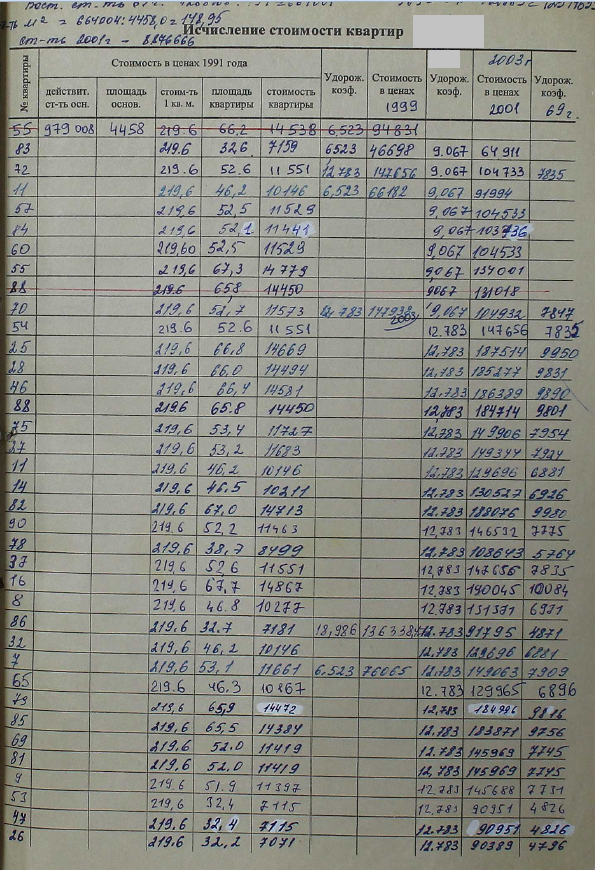 м² = 664004:4458,0 = 148,95
ст-ть 2001г - 8276666
Исчисление стоимости квартир
№ квартиры | Стоимость в ценах 1991 года | Удорож. коэф. | Стоимость в ценах 1999 | Удорож. коэф. | 2003г Стоимость в ценах 2001 | Удорож. коэф. 69г.
действит. ст-ть осн. | площадь основ. | стоим-ть 1 кв. м. | площадь квартиры | стоимость квартиры
55 979 008 4458 219.6 66,2 14538 6,523 94831
83 219.6 32.6 7159 6523 46698 9.067 64 911
72 219.6 52.6 11 551 12.783 147656 9.067 104733 7835
11 219,6 46,2 10146 6,523 66182 9,067 91994
57 219,6 52,5 11529 9,067 104533
84 219.6 52,1 11441 9,067 103736
60 219,60 52,5 11529 9,067 104533
55 219,6 67,3 14779 9,067 134001
88 219.6 658 14450 9067 131018
70 219,6 52,7 11573 12,783 147938 9,067 104932 7847
54 219.6 52.6 11 551 2003г 12.783 147656 7835
25 219,6 66,8 14669 12,783 187514 9950
28 219,6 66,0 14494 12,783 185277 9831
46 219,6 66,4 14581 12.783 186389 9890
88 219.6 65.8 14450 12,783 184714 9801
75 219,6 53,4 11727 12.783 149906 7954
27 219,6 53,2 11683 12.783 149344 7924
11 219.6 46,2 10146 12.783 129696 6881
14 219,6 46,5 10211 12.783 130527 6926
82 219.6 67,0 14713 12.783 188076 9980
90 219,6 52,2 11463 12,783 146532 7775
78 219,6 38,7 8499 12.783 108643 5764
37 219.6 52,6 11551 12.783 147656 7835
16 219,6 67,7 14867 12.783 190045 10084
8 219.6 46.8 10277 12.783 131371 6971
86 219.6 32.7 7181 18,986 12.783 91795 4871
32 219.6 46,2 10146 12.783 129696 6881
7 219.6 53,1 11661 6.523 76065 12.783 149063 7909
65 219.6 46.3 10167 12.783 129965 6896
79 219,6 65,9 14472 12,783 184996
85 219.6 65,5 14384 12.783 183871 9756
69 219.6 52.0 11419 12.783 145969 7745
81 219.6 52,0 11419 12,783 145969 7745
9 219.6 51.9 11397 12.783 145688 7731
53 219.6 32,4 7115 12,783 90951 4826
47 219.6 32,4 7115 12.783 90951 4826
26 219.6 32,2 7071 12.783 90389 4796